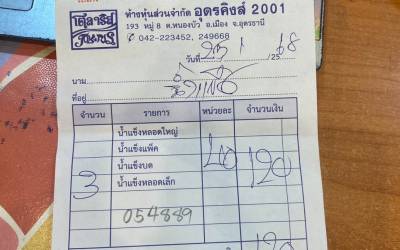 ห้างหุ้นส่วนจำกัด อุดรคิงส์ 2001
193 หมู่ 8 ต.หนองบัว อ.เมือง จ.อุดรธานี
✆ 042-223452, 249668
วันที่ /25 68
นาม
ที่อยู่
จำนวน รายการ หน่วยละ จำนวนเงิน
น้ำแข็งหลอดใหญ่
น้ำแข็งแพ็ค
3 น้ำแข็งบด 40 120
น้ำแข็งหลอดเล็ก
054889
120